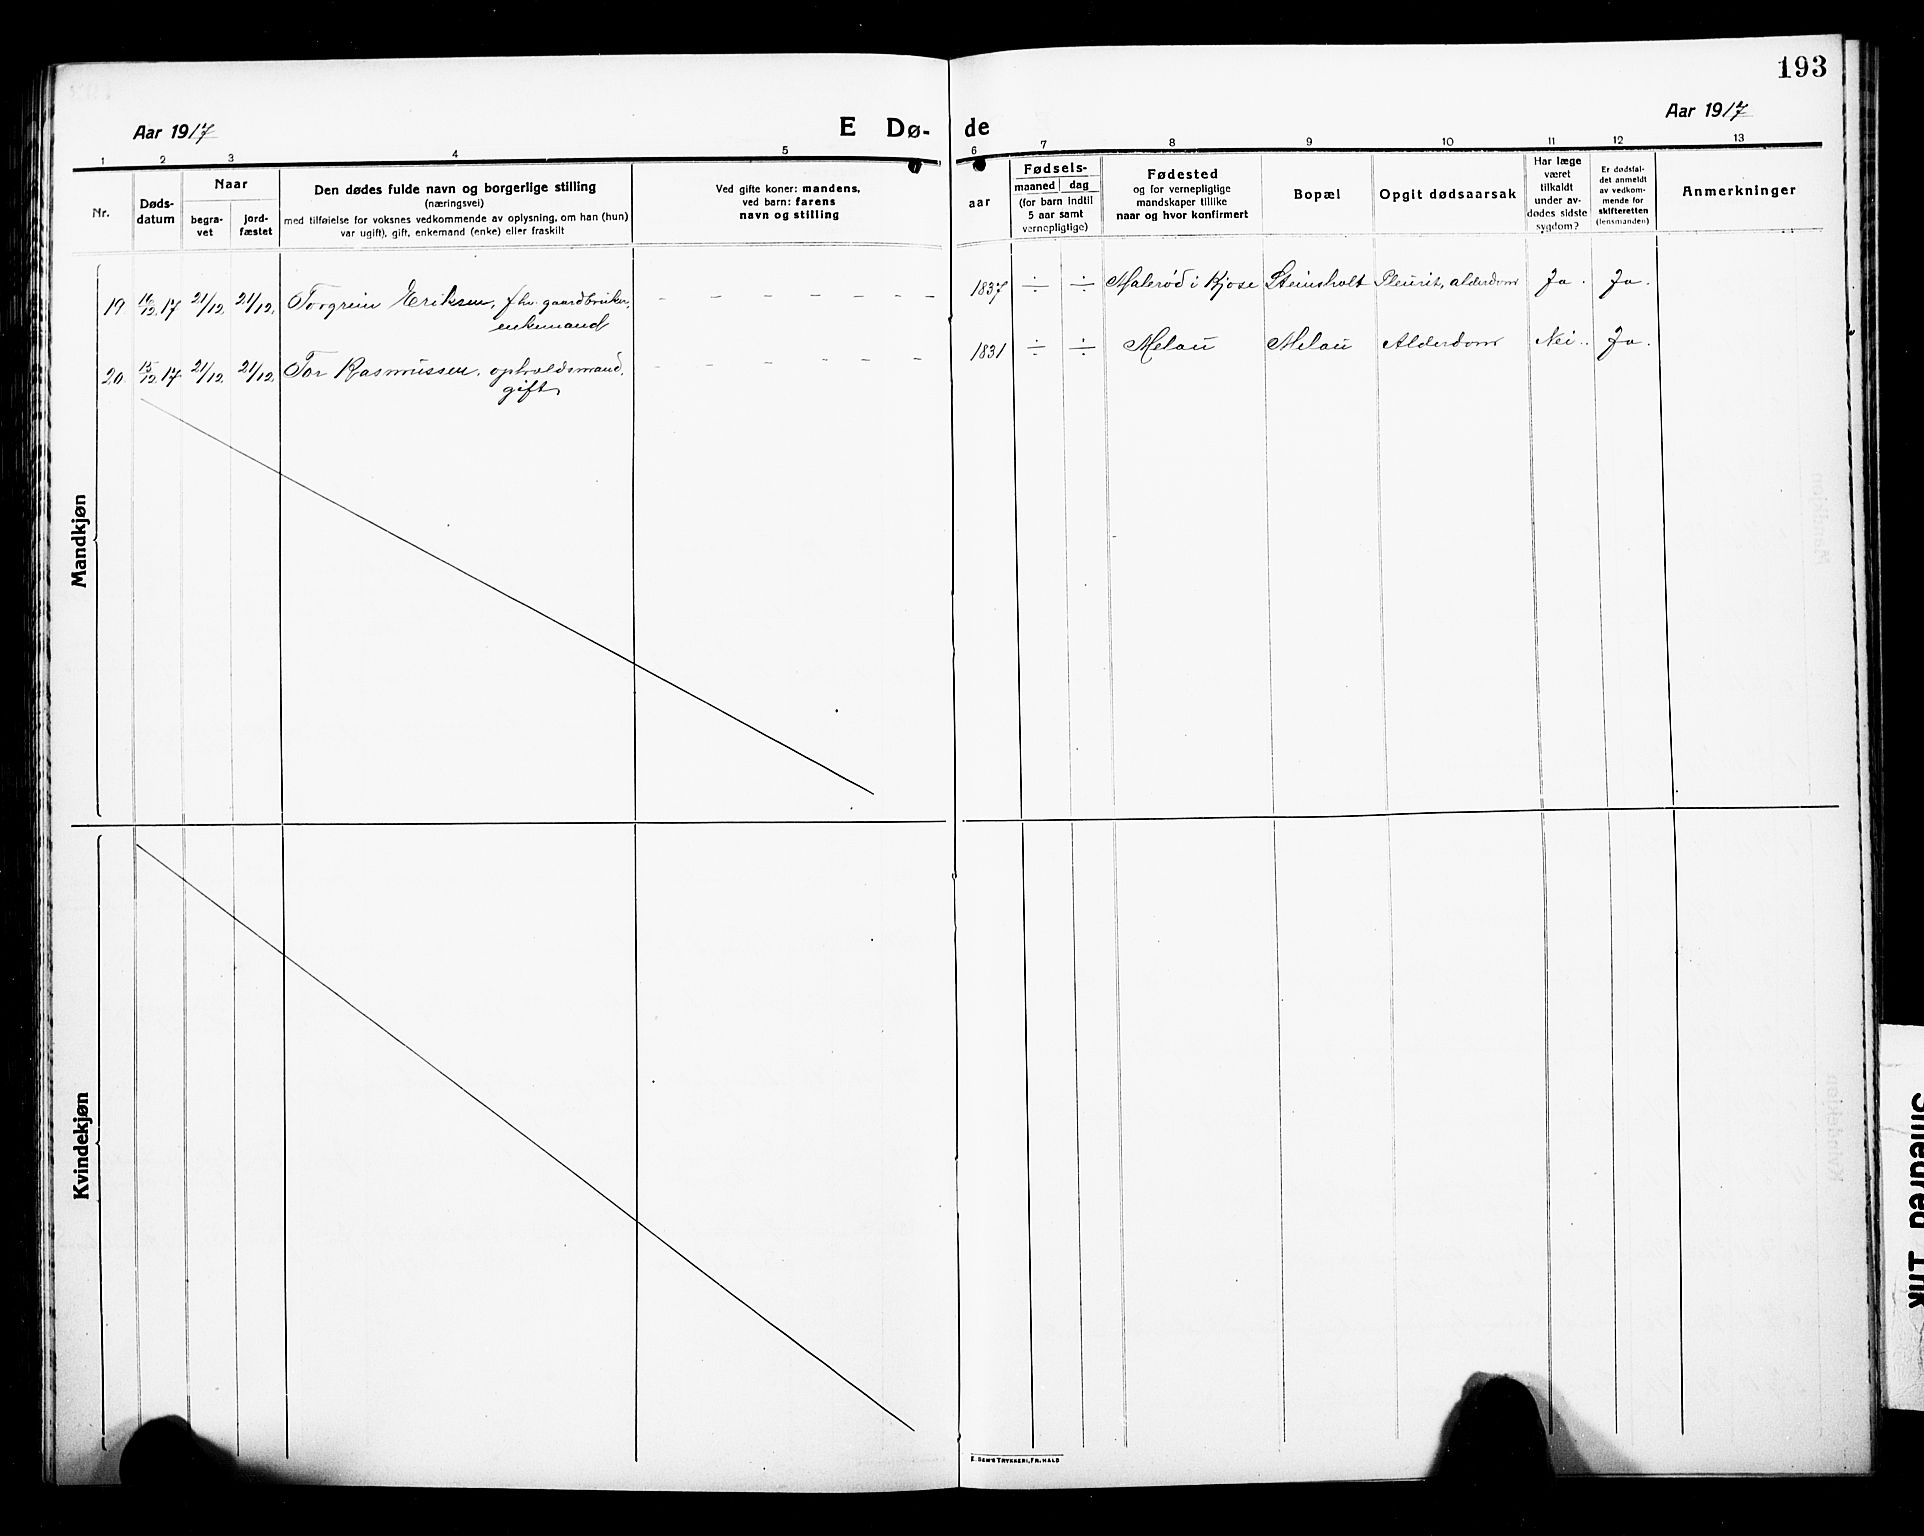 193
Aar 1917
E Dø-
de
Aar 1917
1 2 3 4 5 6 7 8 9 10 11 12 13
Nr.
Døds-
datum
Naar
begra-
vet
jord-
fæstet
Den dødes fulde navn og borgerlige stilling
(næringsvei)
med tilføielse for voksnes vedkommende av oplysning, om han (hun)
var ugift), gift, enkemand (enke) eller fraskilt
Ved gifte koner: mandens,
ved barn: farens
navn og stilling
aar
Fødsels-
maaned | dag
(for barn indtil
5 aar samt
vernepligtige)
Fødested
og for vernepligtige
mandskaper tillike
naar og hvor konfirmert
Bopæl
Opgit dødsaarsak
Har læge
været
tilkaldt
under av-
dødes sidste
sygdom?
Er dødsfal-
det anmeldt
av vedkom-
mende for
skifteretten
(lensmanden)
Anmerkninger
Mandkjøn
19 16/12 17 21/12 21/12. Torgrim Eriksen, fhv. gaardbruker, – – – – – – – – 1837 ÷ ÷ Malerød i Kjose Steinsholt Pleurit, alderdom Ja. Ja.
enkemand
20 15/12 17 21/12 21/12 Tor Rasmussen, opholdsmand, – – – – – – 1831 ÷ ÷ Melau Melau Alderdom Nei. Ja.
gift
Kvindekjøn
E. SEM'S TRYKKERI, FR.HALD